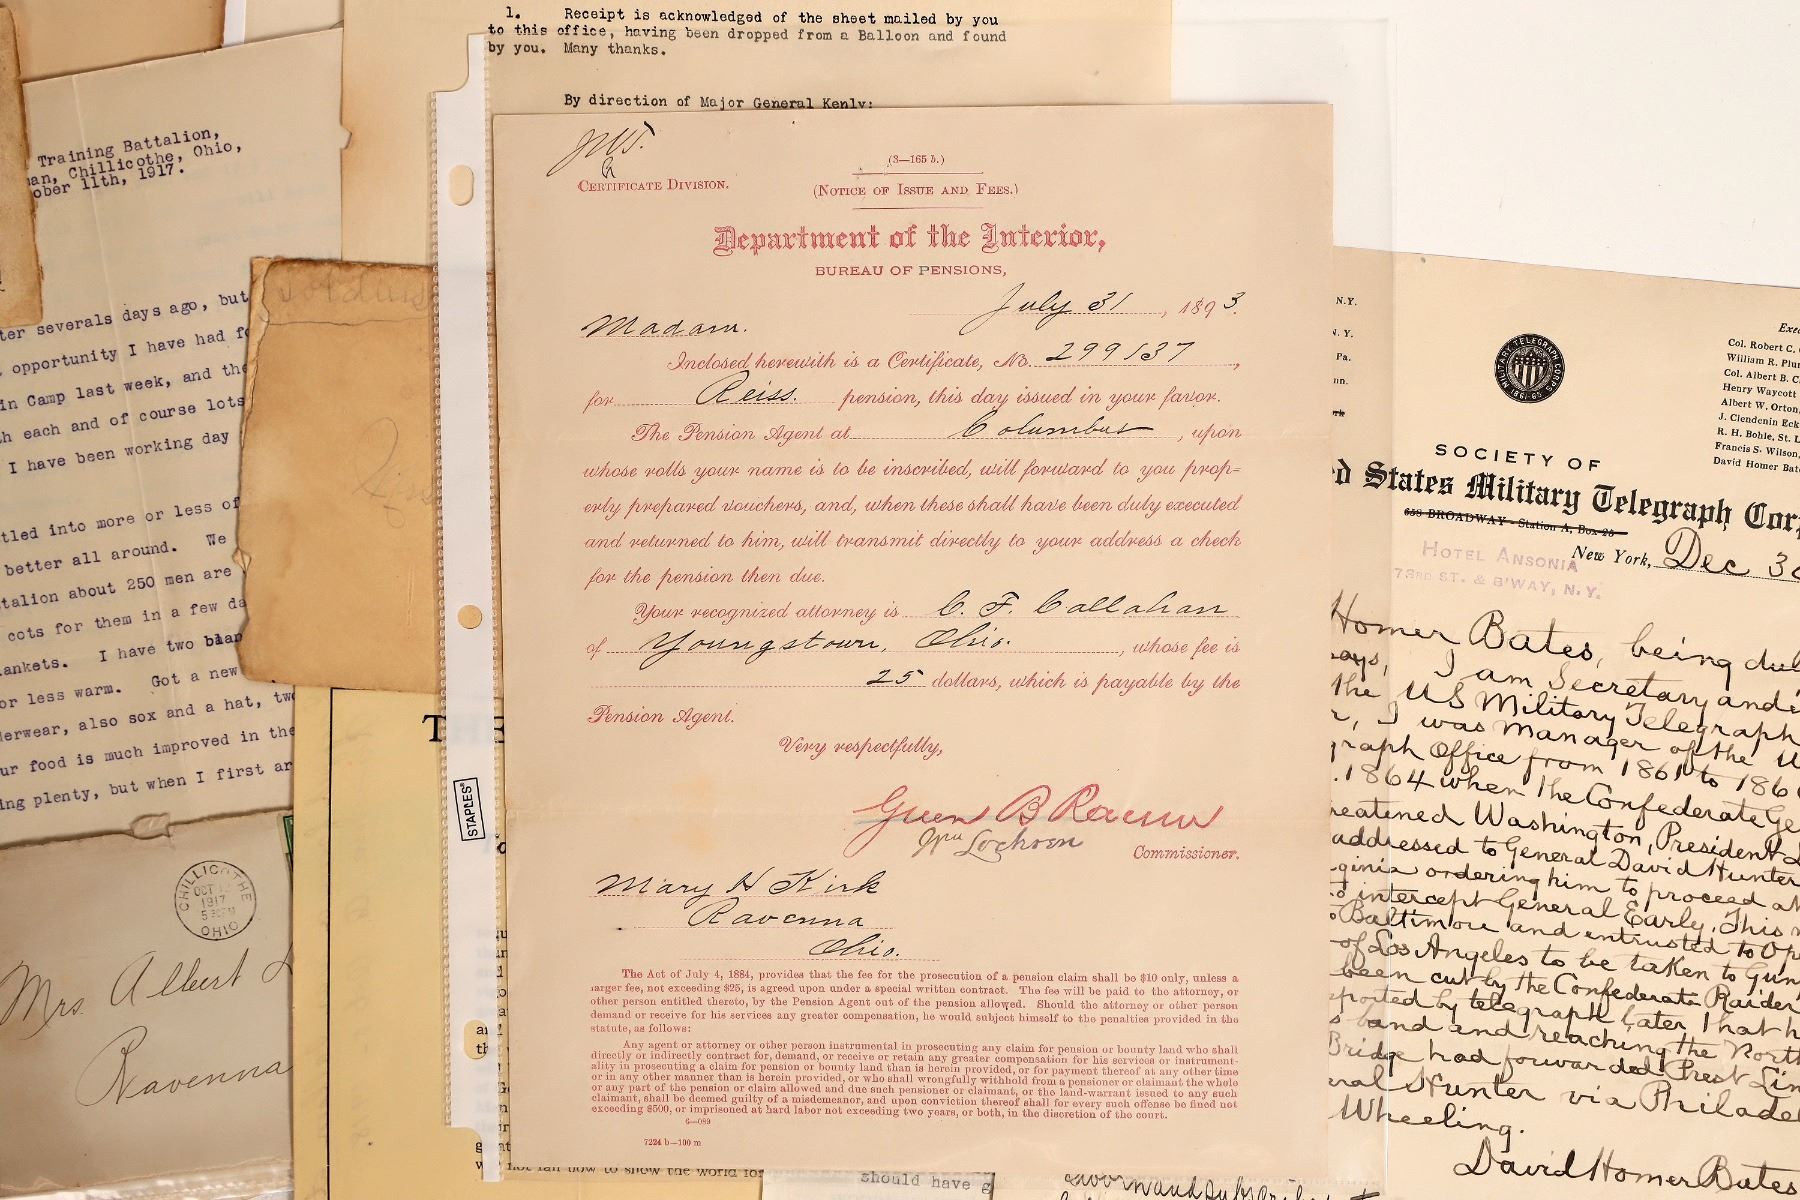 1. Receipt is acknowledged of the sheet mailed by you
to this office, having been dropped from a Balloon and found
by you. Many thanks.
By direction of Major General Kenly:
Training Battalion,
man, Chillicothe, Ohio,
ober 11th, 1917.
ter severals days ago, but
opportunity I have had fo
in Camp last week, and the
h each and of course lots
I have been working day
tled into more or less of
better all around. We
talion about 250 men are
cots for them in a few da
ankets. I have two blan
or less warm. Got a new
derwear, also sox and a hat, two
ur food is much improved in the
ing plenty, but when I first ar
CHILLICOTHE
OCT
1917
OHIO
Mrs. Albert L
Ravenna
STAPLES
(3—165 b.)
CERTIFICATE DIVISION.
(NOTICE OF ISSUE AND FEES.)
Department of the Interior,
BUREAU OF PENSIONS,
July 31, 1893.
Madam.
Inclosed herewith is a Certificate, No. 299137,
for Reiss. pension, this day issued in your favor.
The Pension Agent at Columbus, upon
whose rolls your name is to be inscribed, will forward to you prop-
erly prepared vouchers, and, when these shall have been duly executed
and returned to him, will transmit directly to your address a check
for the pension then due.
Your recognized attorney is C. F. Callahan
of Youngstown, Ohio., whose fee is
25 dollars, which is payable by the
Pension Agent.
Very respectfully,
Green B Raum
Wm Lochren
Commissioner.
Mary H Kirk
Ravenna
Ohio.
The Act of July 4, 1884, provides that the fee for the prosecution of a pension claim shall be $10 only, unless a
larger fee, not exceeding $25, is agreed upon under a special written contract. The fee will be paid to the attorney, or
other person entitled thereto, by the Pension Agent out of the pension allowed. Should the attorney or other person
demand or receive for his services any greater compensation, he would subject himself to the penalties provided in the
statute, as follows:
Any agent or attorney or other person instrumental in prosecuting any claim for pension or bounty land who shall
directly or indirectly contract for, demand, or receive or retain any greater compensation for his services or instrument-
ality in prosecuting a claim for pension or bounty land than is herein provided, or for payment thereof at any other time
or in any other manner than is herein provided, or who shall wrongfully withhold from a pensioner or claimant the whole
or any part of the pension or claim allowed and due such pensioner or claimant, or the land-warrant issued to any such
claimant, shall be deemed guilty of a misdemeanor, and upon conviction thereof shall for every such offense be fined not
exceeding $500, or imprisoned at hard labor not exceeding two years, or both, in the discretion of the court.
6—089
7224 b—100 m
should have g
N.Y.
N.Y.
Pa.
MILITARY TELEGRAPH CORPS
1861-65
Exec
Col. Robert C.
William R. Plum
Col. Albert B. C
Henry Waycott
Albert W. Orton,
J. Clendenin Eck
R. H. Bohle, St. L
Francis S. Wilson,
David Homer Bate
SOCIETY OF
d States Military Telegraph Corp
658 BROADWAY - Station A, Box 25
HOTEL ANSONIA
73RD ST. & B'WAY, N.Y.
New York, Dec 30
Homer Bates, being dul
says, I am Secretary and
the US Military Telegraph
r, I was manager of the U
graph Office from 1861 to 1866
1864 when the Confederate Ge
reatened Washington, President L
addressed to General David Hunter
ginia ordering him to proceed at
to intercept General Early. This
Baltimore and entrusted to Op
of Los Angeles to be taken to Gun
been cut by the Confederate Raider
eported by telegraph later, that h
s band and reaching the North
Bridge had forwarded Prest Lin
eral Hunter via Philadel
Wheeling.
David Homer Bates